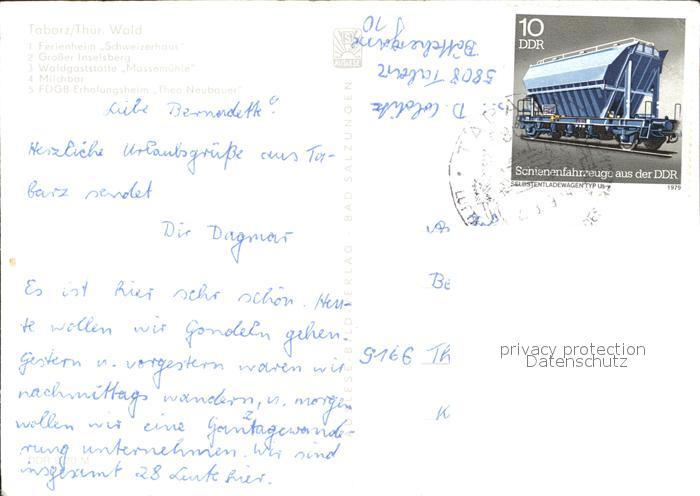 Tabarz/Thür. Wald
1 Ferienheim „Schweizerhaus"
2 Großer Inselsberg
3 Waldgaststätte „Massemühle"
4 Milchbar
5 FDGB-Erholungsheim „Theo Neubauer"
Liebe Bernadette!
Herzliche Urlaubsgrüße aus Ta-
barz sendet
Dir Dagmar
Es ist hier sehr schön. Heu-
te wollen wir Gondeln gehen.
Gestern u. vorgestern waren wir
nachmittags wandern, u. morgen
wollen wir eine Ganztagewande-
rung unternehmen. Wir sind
insgesamt 28 Leute hier.
AUSLESE-BILD-VERLAG - BAD SALZUNGEN
D.
5808 Tabarz
10
10
DDR
Schienenfahrzeuge aus der DDR
SELBSTENTLADEWAGEN TYP Us-y
1979
An
Be
9166 Th
K
privacy protection
Datenschutz